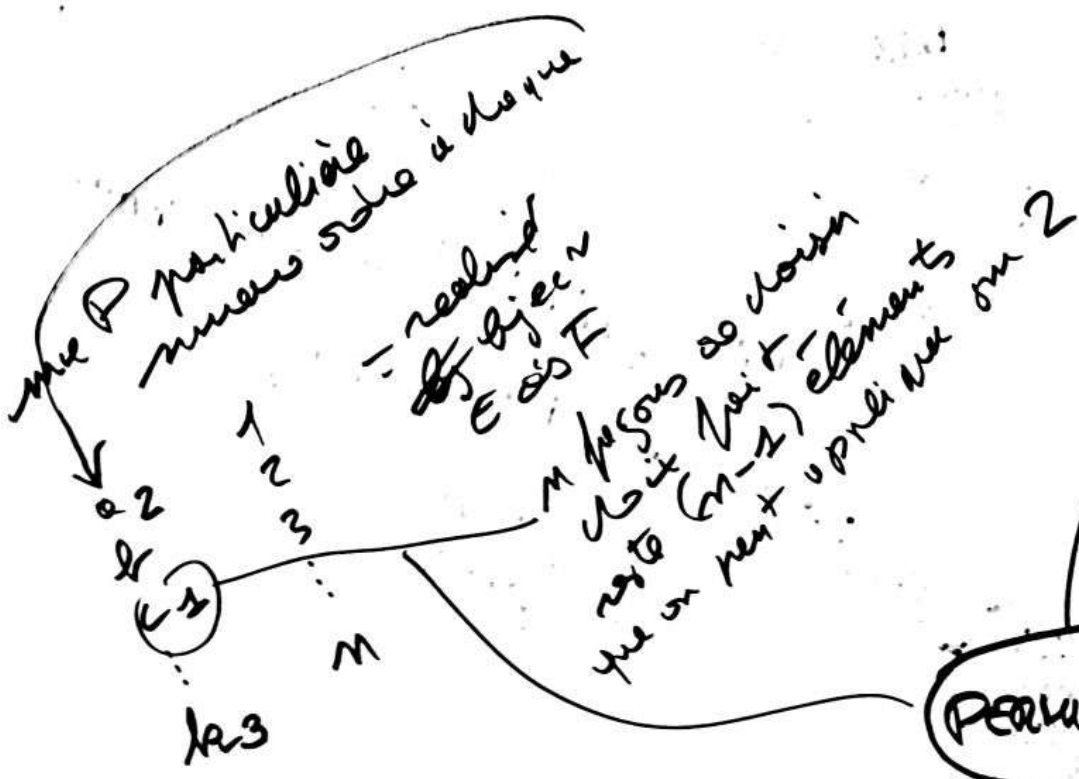 une P particulière
numero ordre à chaque
= realisé
bijec
E ds F
n façons de choisir
choix fait
reste (n-1) éléments
que on peut appliquer sur 2
a 2
b
c 1
k 3
1
2
3
n
PERMU